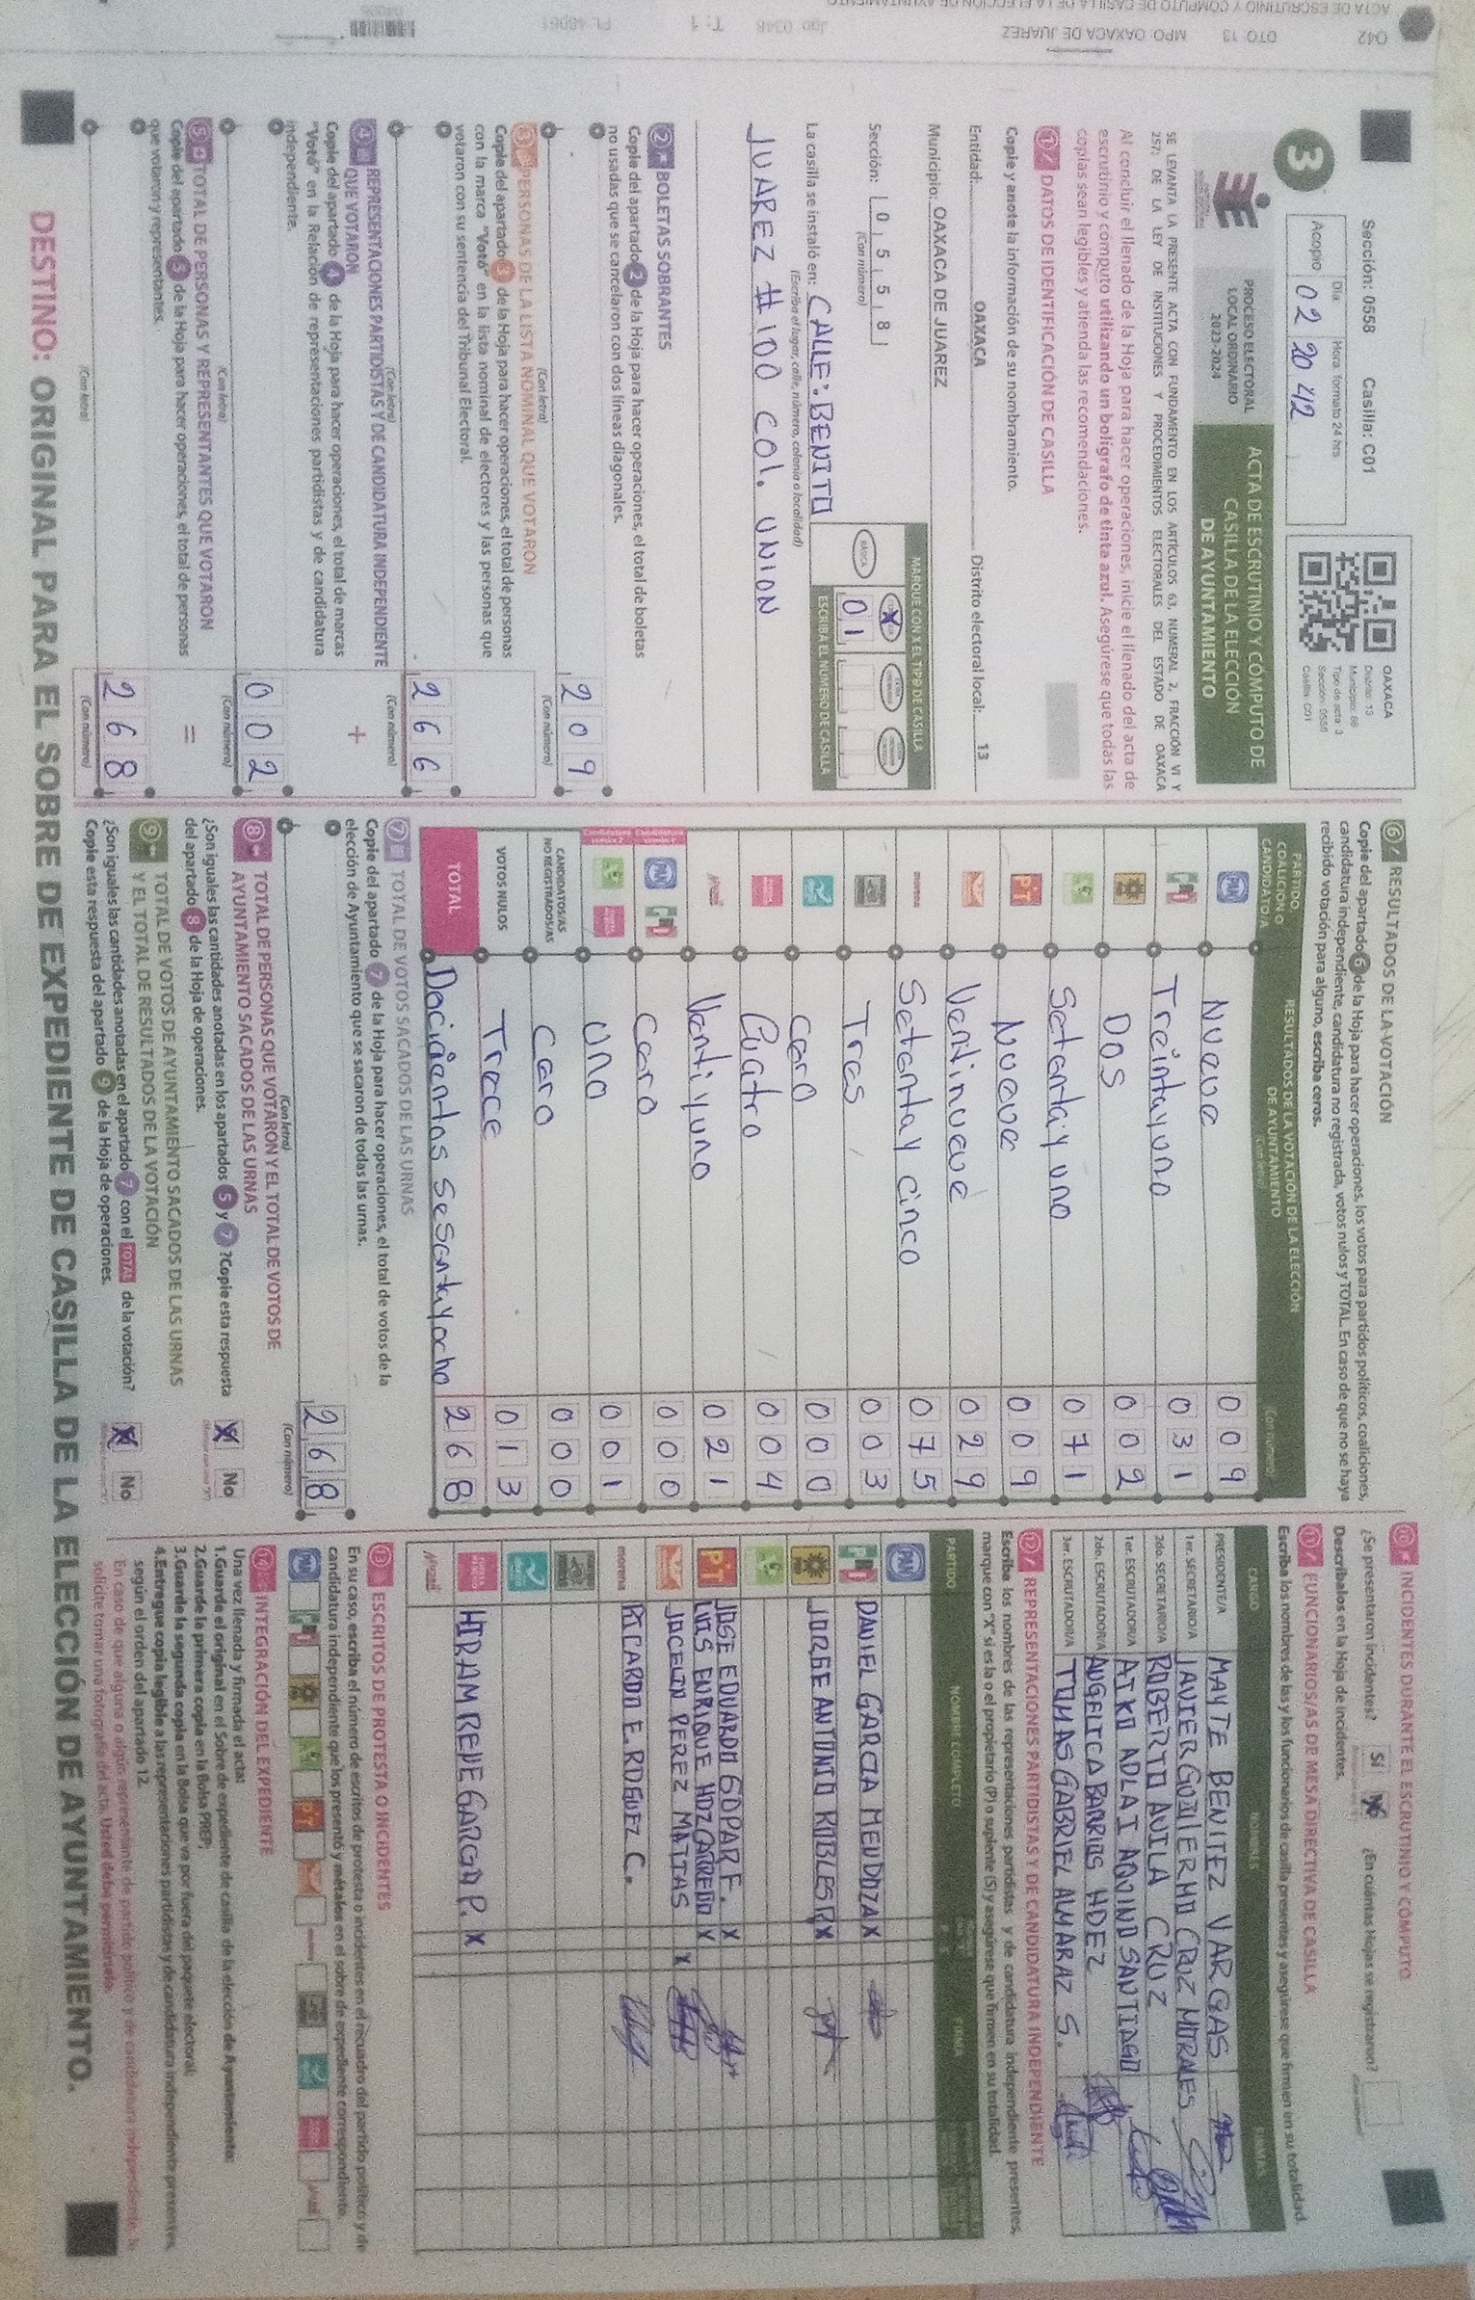 Sección: 0558 Casilla: C01
Día Hora formato 24 hrs
Acopio 02 20 42
OAXACA
Distrito: 13
Tipo de acta: 3
Sección: 0558
Casilla: C01
3
PROCESO ELECTORAL
LOCAL ORDINARIO
2023-2024
ACTA DE ESCRUTINIO Y CÓMPUTO DE
CASILLA DE LA ELECCIÓN
DE AYUNTAMIENTO
SE LEVANTA LA PRESENTE ACTA CON FUNDAMENTO EN LOS ARTÍCULOS 63, NUMERAL 2, FRACCIÓN VI Y
257; DE LA LEY DE INSTITUCIONES Y PROCEDIMIENTOS ELECTORALES DEL ESTADO DE OAXACA
Al concluir el llenado de la Hoja para hacer operaciones, inicie el llenado del acta de
escrutinio y cómputo utilizando un bolígrafo de tinta azul. Asegúrese que todas las
copias sean legibles y atienda las recomendaciones.
1 DATOS DE IDENTIFICACIÓN DE CASILLA
Copie y anote la información de su nombramiento.
Entidad: OAXACA Distrito electoral local: 13
Municipio: OAXACA DE JUAREZ
Sección: 0 5 5 8
(Con número)
MARQUE CON X EL TIPO DE CASILLA
BÁSICA X
01
ESCRIBA EL NÚMERO DE CASILLA
La casilla se instaló en: CALLE: BENITO
(Escriba el lugar, calle, número, colonia o localidad)
JUAREZ #100 COL. UNION
2 BOLETAS SOBRANTES
Copie del apartado 2 de la Hoja para hacer operaciones, el total de boletas
no usadas que se cancelaron con dos líneas diagonales.
209
(Con letra) (Con número)
3 PERSONAS DE LA LISTA NOMINAL QUE VOTARON
Copie del apartado 3 de la Hoja para hacer operaciones, el total de personas
con la marca "Votó" en la lista nominal de electores y las personas que
votaron con su sentencia del Tribunal Electoral.
266
(Con letra) (Con número)
4 REPRESENTACIONES PARTIDISTAS Y DE CANDIDATURA INDEPENDIENTE
QUE VOTARON +
Copie del apartado 4 de la Hoja para hacer operaciones, el total de marcas
"Votó" en la Relación de representaciones partidistas y de candidatura
independiente.
002
(Con letra) (Con número)
5 TOTAL DE PERSONAS Y REPRESENTANTES QUE VOTARON =
Copie del apartado 5 de la Hoja para hacer operaciones, el total de personas
que votaron y representantes.
268
(Con letra) (Con número)
6 RESULTADOS DE LA VOTACIÓN
Copie del apartado 6 de la Hoja para hacer operaciones, los votos para partidos políticos, coaliciones,
candidatura independiente, candidatura no registrada, votos nulos y TOTAL. En caso de que no se haya
recibido votación para alguno, escriba ceros.
PARTIDO,
COALICIÓN O
CANDIDATO/A
RESULTADOS DE LA VOTACIÓN DE LA ELECCIÓN
DE AYUNTAMIENTO
(Con letra) (Con número)
PAN Nueve 009
Treintayuno 031
Dos 002
Setentay uno 071
PT Nueve 009
Ventinueve 029
morena Setentay cinco 075
Tres 003
Cero 000
Cuatro 004
Ventiyuno 021
PAN Cero 000
uno 001
CANDIDATOS/AS
NO REGISTRADOS/AS Cero 000
VOTOS NULOS Trece 013
TOTAL Docicientos sesentayocho 268
7 TOTAL DE VOTOS SACADOS DE LAS URNAS
Copie del apartado 7 de la Hoja para hacer operaciones, el total de votos de la
elección de Ayuntamiento que se sacaron de todas las urnas.
268
(Con letra) (Con número)
8 TOTAL DE PERSONAS QUE VOTARON Y EL TOTAL DE VOTOS DE
AYUNTAMIENTO SACADOS DE LAS URNAS
¿Son iguales las cantidades anotadas en los apartados 5 y 7 ?Copie esta respuesta
del apartado 8 de la Hoja de operaciones.
X No
9 TOTAL DE VOTOS DE AYUNTAMIENTO SACADOS DE LAS URNAS
Y EL TOTAL DE RESULTADOS DE LA VOTACIÓN
¿Son iguales las cantidades anotadas en el apartado 7 con el TOTAL de la votación?
Copie esta respuesta del apartado 9 de la Hoja de operaciones.
X No
10 INCIDENTES DURANTE EL ESCRUTINIO Y CÓMPUTO
¿Se presentaron incidentes? Sí No ¿En cuántas Hojas se registraron?
Descríbalos en la Hoja de incidentes.
11 FUNCIONARIOS/AS DE MESA DIRECTIVA DE CASILLA
Escriba los nombres de las y los funcionarios de casilla presentes y asegúrese que firmen en su totalidad.
CARGO NOMBRES FIRMAS
PRESIDENTE/A MAYTE BENITEZ VARGAS
1er. SECRETARIO/A JAVIER GUILLERMO CRUZ MORALES
2do. SECRETARIO/A ROBERTO AVILA CRUZ
1er. ESCRUTADOR/A AIKO ADLAI AQUINO SANTIAGO
2do. ESCRUTADOR/A ANGELICA BARRIOS HDEZ
3er. ESCRUTADOR/A TOMAS GABRIEL ALMARAZ S.
12 REPRESENTACIONES PARTIDISTAS Y DE CANDIDATURA INDEPENDIENTE
Escriba los nombres de las representaciones partidistas y de candidatura independiente presentes,
marque con "X" si es la o el propietario (P) o suplente (S) y asegúrese que firmen en su totalidad.
PARTIDO NOMBRE COMPLETO P S FIRMA
PAN
DANIEL GARCIA MENDOZA X
JORGE ANTONIO ROBLES X
PT JOSE EDUARDO GOPAR F. X
LUIS ENRIQUE HDZ X
JOCELIN PEREZ MATIAS X
morena RICARDO E. RDGUEZ C.
HIRAM REPE GARGA P. X
13 ESCRITOS DE PROTESTA O INCIDENTES
En su caso, escriba el número de escritos de protesta o incidentes en el recuadro del partido político y de
candidatura independiente que los presentó y métalos en el sobre de expediente correspondiente.
14 INTEGRACIÓN DEL EXPEDIENTE
Una vez llenada y firmada el acta:
1.Guarde el original en el Sobre de expediente de casilla de la elección de Ayuntamiento;
2.Guarde la primera copia en la Bolsa PREP;
3.Guarde la segunda copia en la Bolsa que va por fuera del paquete electoral;
4.Entregue copia legible a las representaciones partidistas y de candidatura independiente presentes,
según el orden del apartado 12.
En caso de que alguna o algún representante de partido político y de candidatura independiente, le
solicite tomar una fotografía del acta, Usted debe permitirselo.
DESTINO: ORIGINAL PARA EL SOBRE DE EXPEDIENTE DE CASILLA DE LA ELECCIÓN DE AYUNTAMIENTO.
ACTA DE ESCRUTINIO Y CÓMPUTO DE CASILLA DE LA ELECCIÓN DE AYUNTAMIENTO
042 DTO 13 MPO OAXACA DE JUAREZ Jgo 0346 T: 1